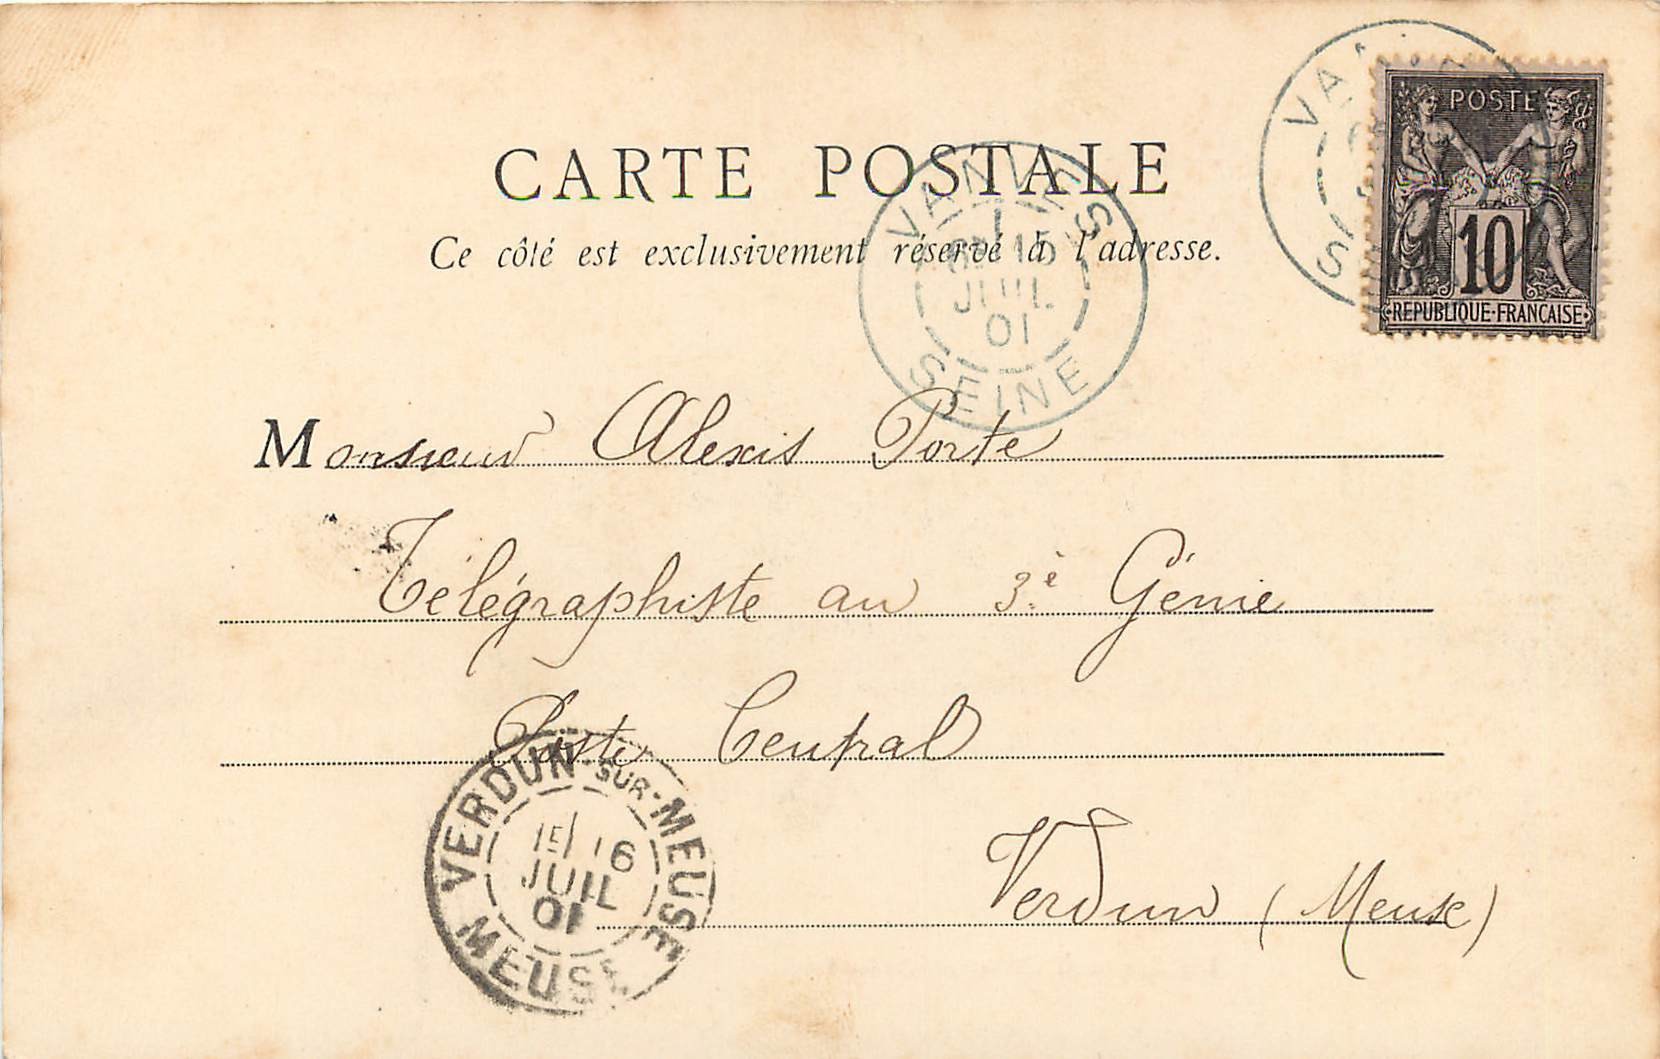 CARTE POSTALE
Ce côté est exclusivement réservé à l'adresse.
POSTE
10
REPUBLIQUE-FRANÇAISE
VANVES
15
JUIL
01
SEINE
Monsieur Alexis Porte
Télégraphiste au 3e Génie
Poste Central
Verdun (Meuse)
VERDUN-SUR-MEUSE
1E 16
JUIL
01
MEUSE